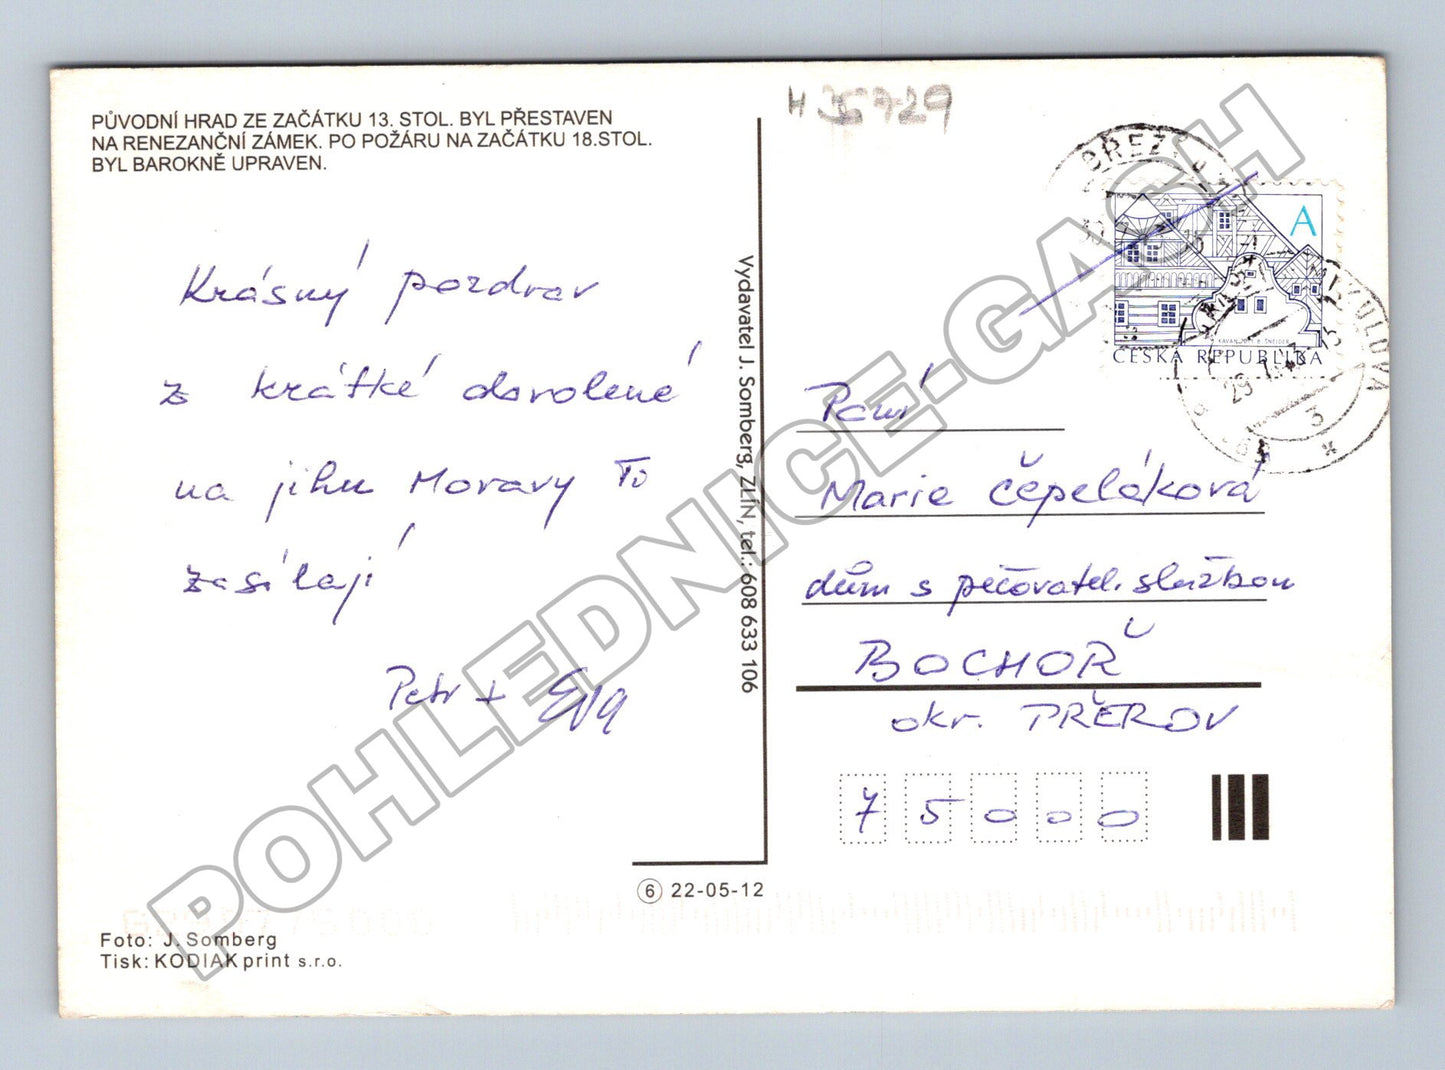 PŮVODNÍ HRAD ZE ZAČÁTKU 13. STOL. BYL PŘESTAVEN
NA RENEZANČNÍ ZÁMEK. PO POŽÁRU NA ZAČÁTKU 18.STOL.
BYL BAROKNĚ UPRAVEN.
Krásný pozdrav
z krátké dovolené
na jihu Moravy Ti
zasílají
Petr + Eva
Foto: J. Somberg
Tisk: KODIAK print s.r.o.
Vydavatel J. Somberg, ZLÍN, tel.: 608 633 106
6 22-05-12
H 35729
A
ČESKÁ REPUBLIKA
Paní
Marie Čepeláková
dům s pečovatel. službou
BOCHOŘ
okr. PŘEROV
75000
POHLEDNICE-GASH